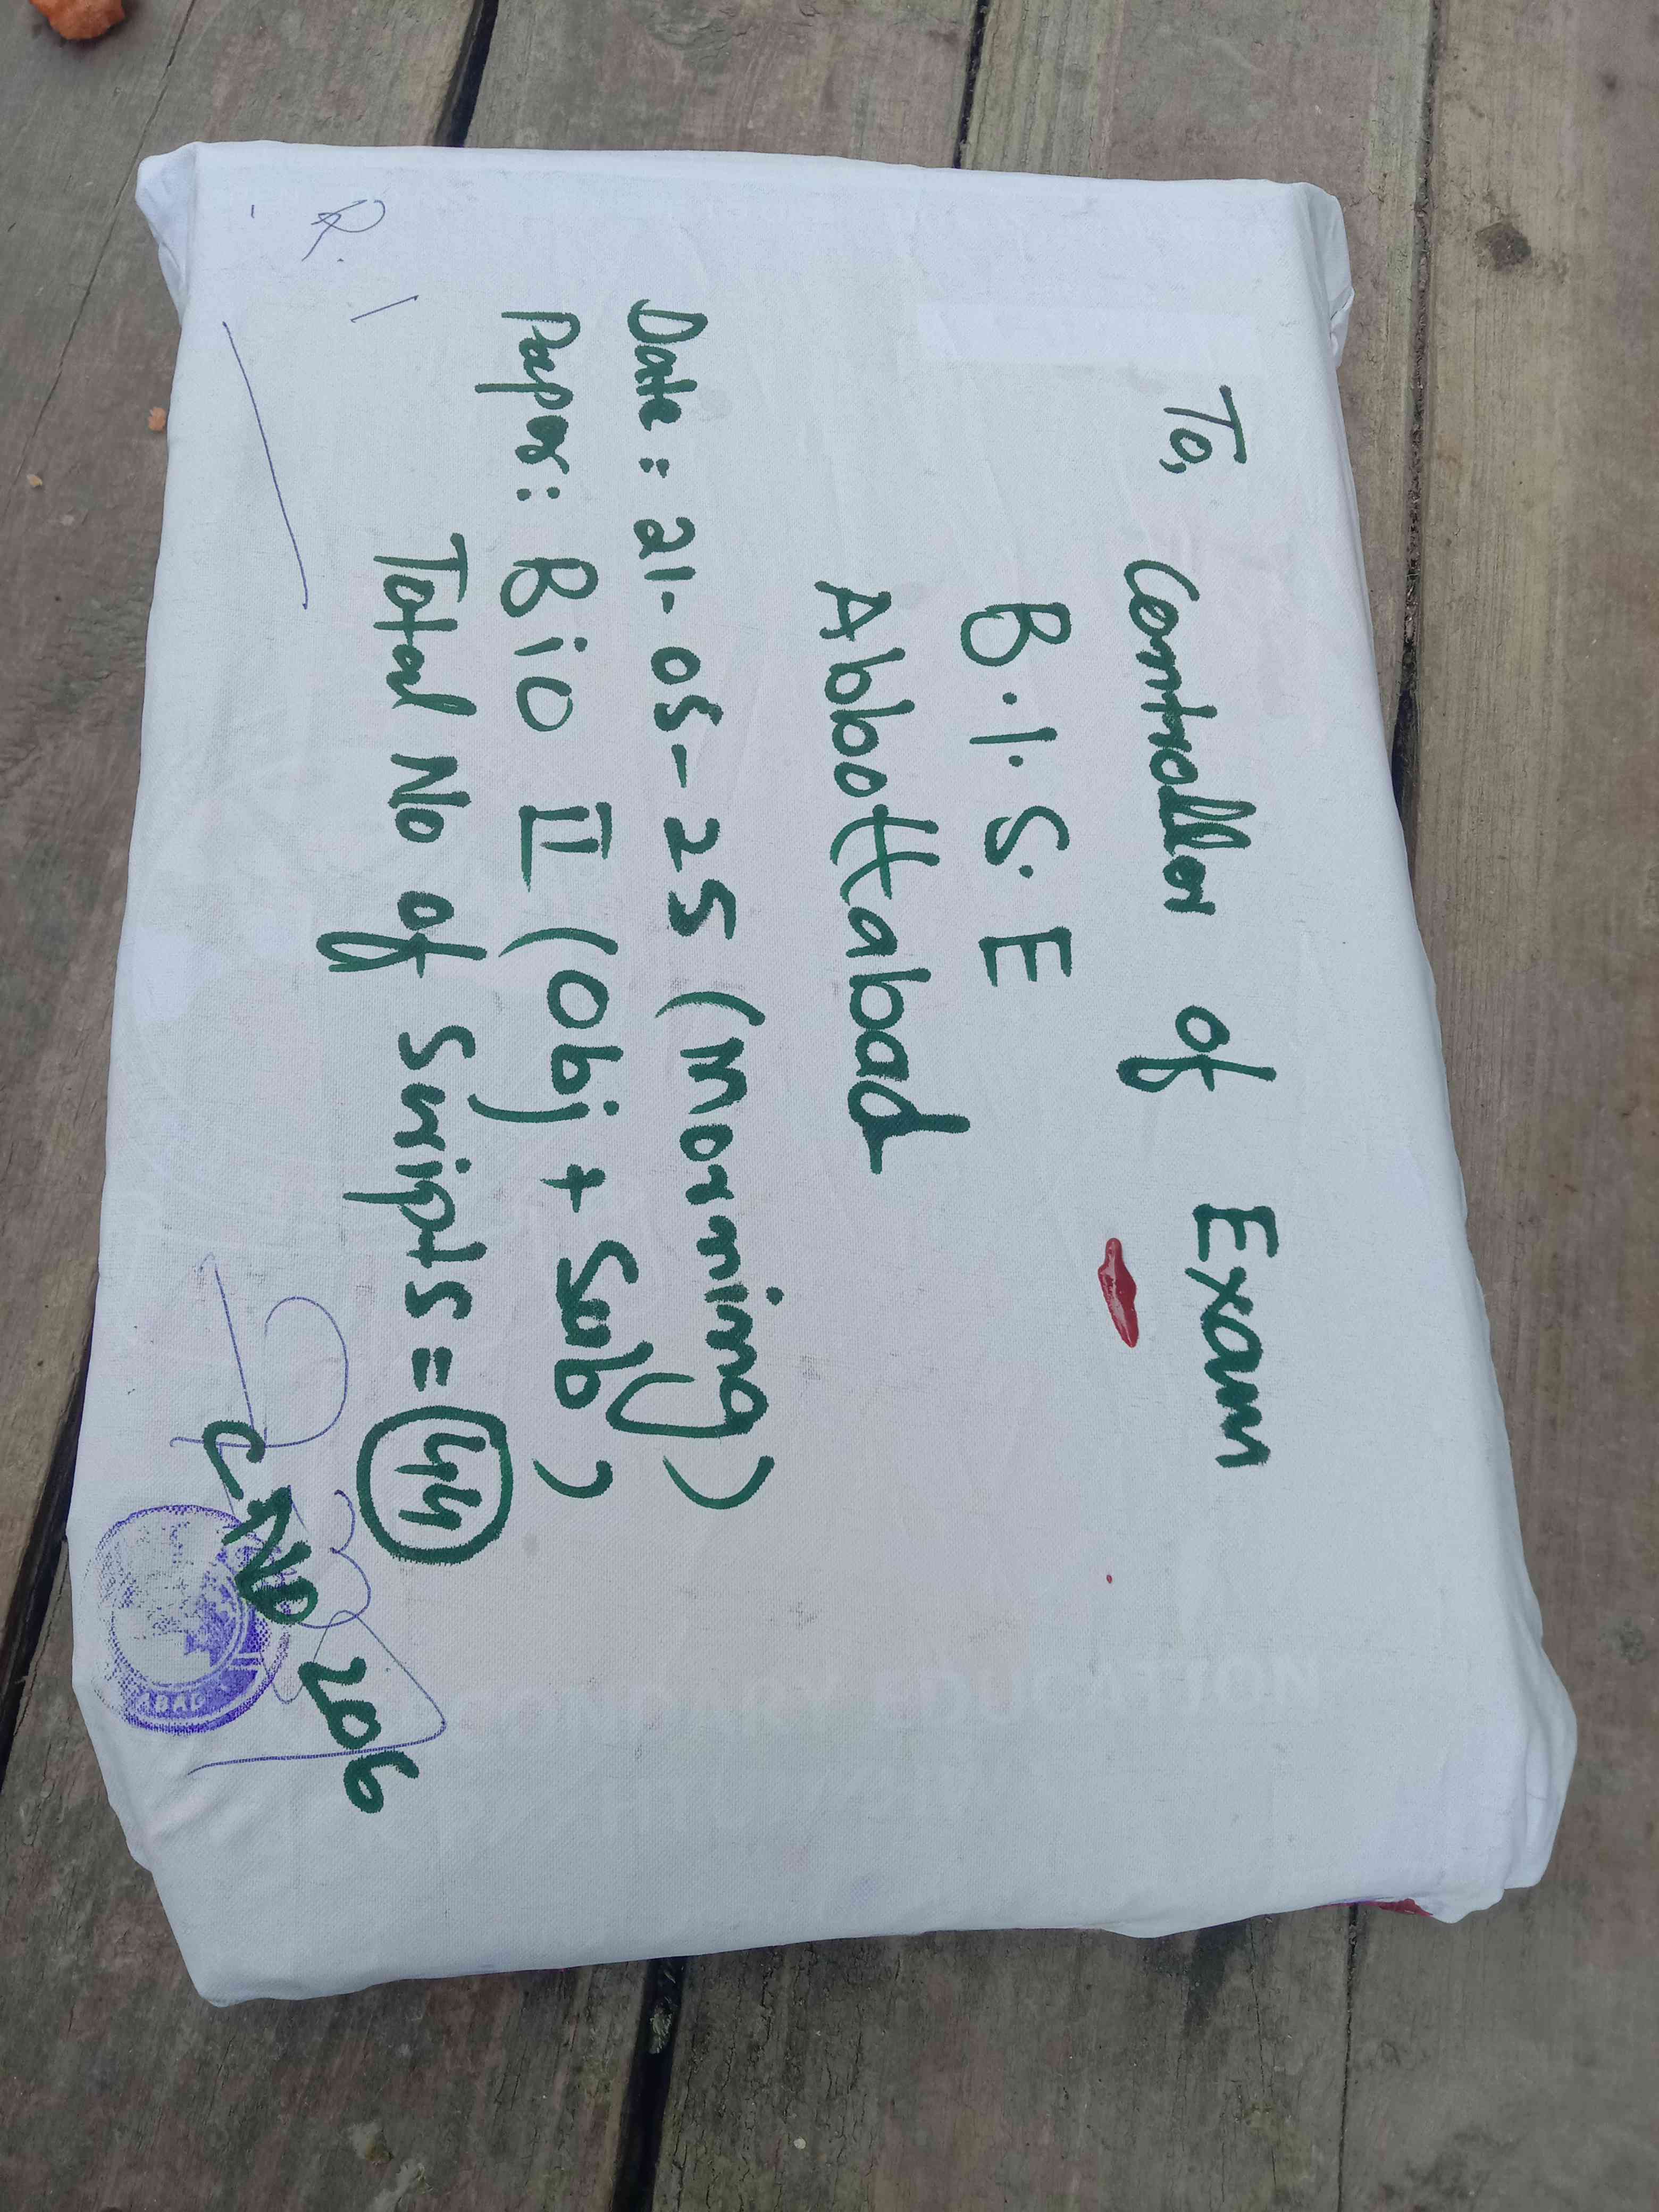 To,
Controller of Exam
B.I.S.E
Abbottabad
Date: 21-05-25 (Morning)
Paper: Bio II (Obj + Sub)
Total No of Scripts = 44
C.No 206
ABAD